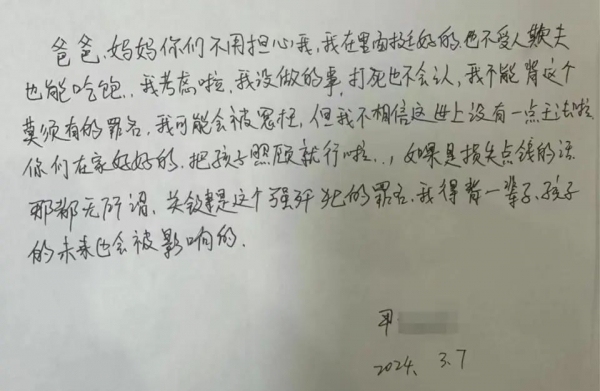 爸爸、妈妈你们不用担心我,我在里面挺好的.也不受人欺夫
也能吃饱.,我考虑啦.我没做的事,打死也不会认,我不能背这个
莫须有的罪名.我可能会被冤枉,但我不相信这世上没有一点王法啦.
你们在家好好的.把孩子照顾就行啦..,如果是损失点钱的话
那都无所谓、关键是这个强奸犯的罪名.我得背一辈子、孩子
的未来也会被影响的.
甲
2024、3.7